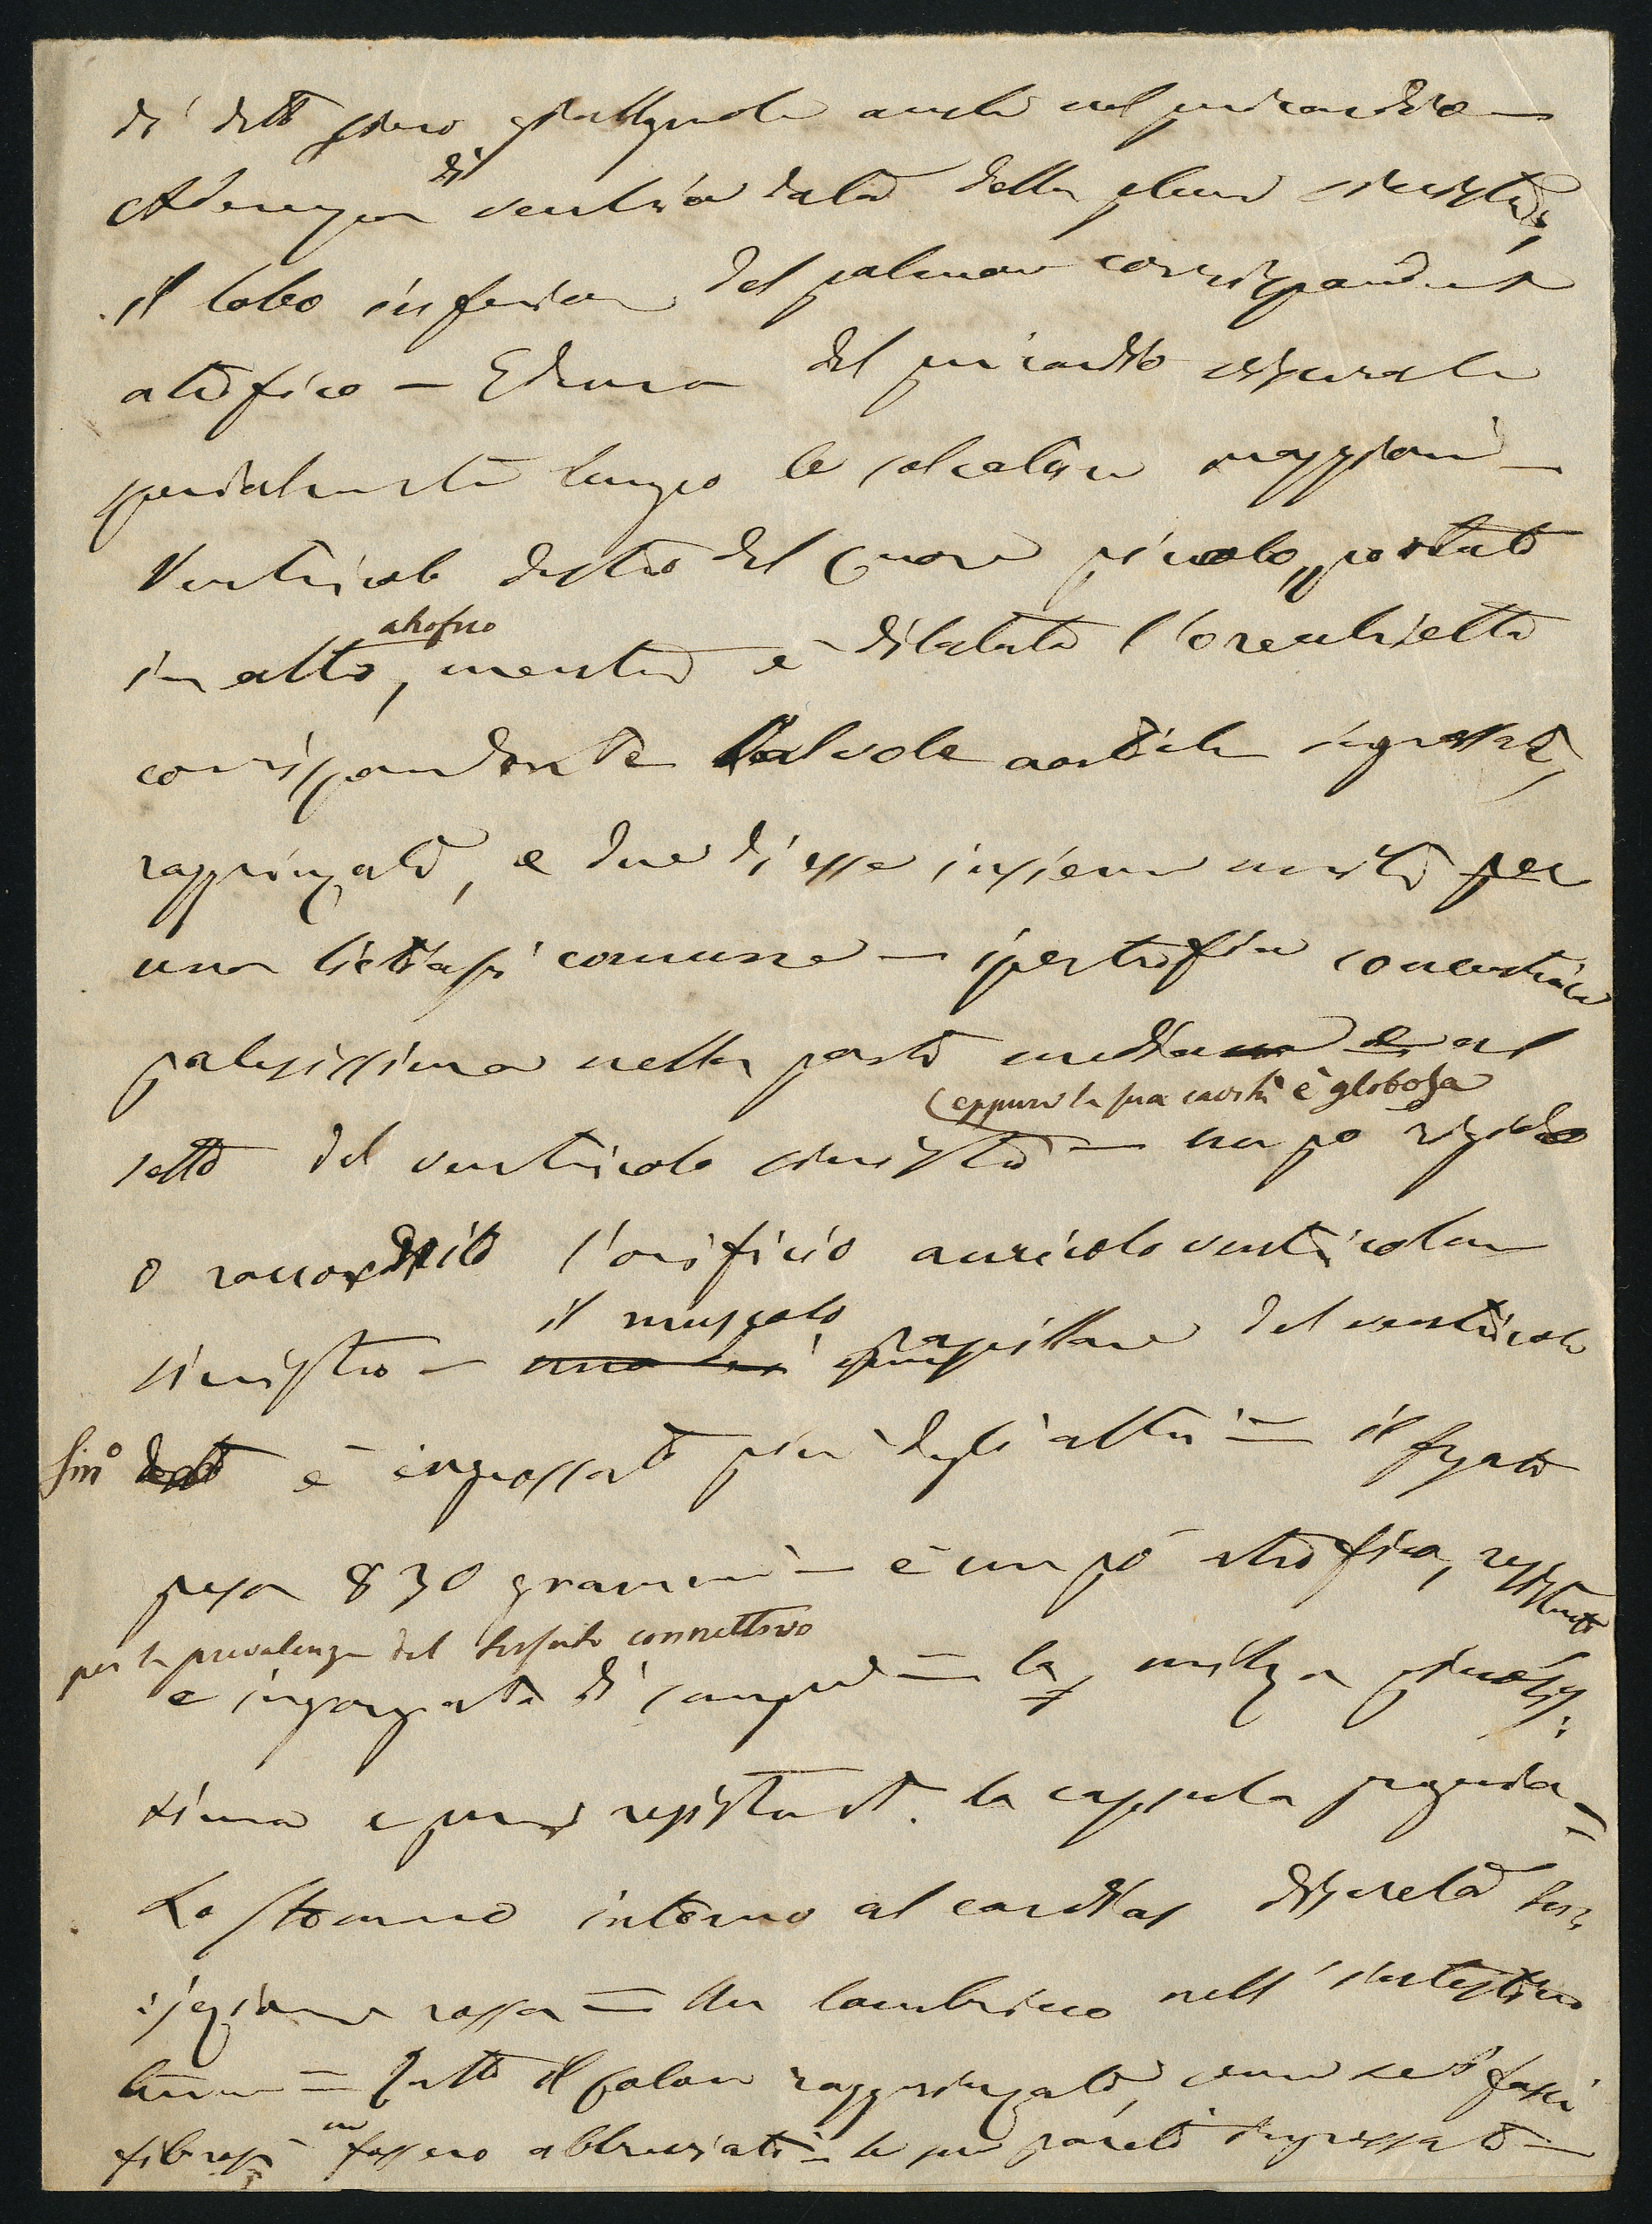 di detto siero giallognolo anche nel pericardio —
Aderenza di vecchia data della pleura sinistra,
il lobo inferiore del polmone corrispondente
atrofico — Edema del pericardio viscerale
specialmente lungo le solcature maggiori —
Ventricolo destro del cuore piccolo, portato
in alto, atrofico mentre è dilatata l'orecchietta
corrispondente Valvole aortiche ingrossate,
raggrinzate, e due di esse insieme unite per
una litiasi comune — ipertrofia concentrica
palesissima nella parte media e nel
(eppure la sua cavità è globosa
setto del ventricolo sinistro — un po rigido
o raccorcito l'orificio auricolo ventricolare
il muscolo
sinistro — papillare del ventricolo
Sin° è ingrossato più degli altri — il fegato
pesa 830 grammi — è un po' atrofico, resistente
per la prevalenza del tessuto connettivo
e ingorgato di sangue — la milza
sima e resistente. la capsula
Lo stomaco intorno al cardias discreta
iniezione rossa — Un lombrico nell'intestino
tenue — Tutto il colon raggrinzato, come se i fasci
fibrosi ne fossero abbreviati — le sue pareti ingrossate —